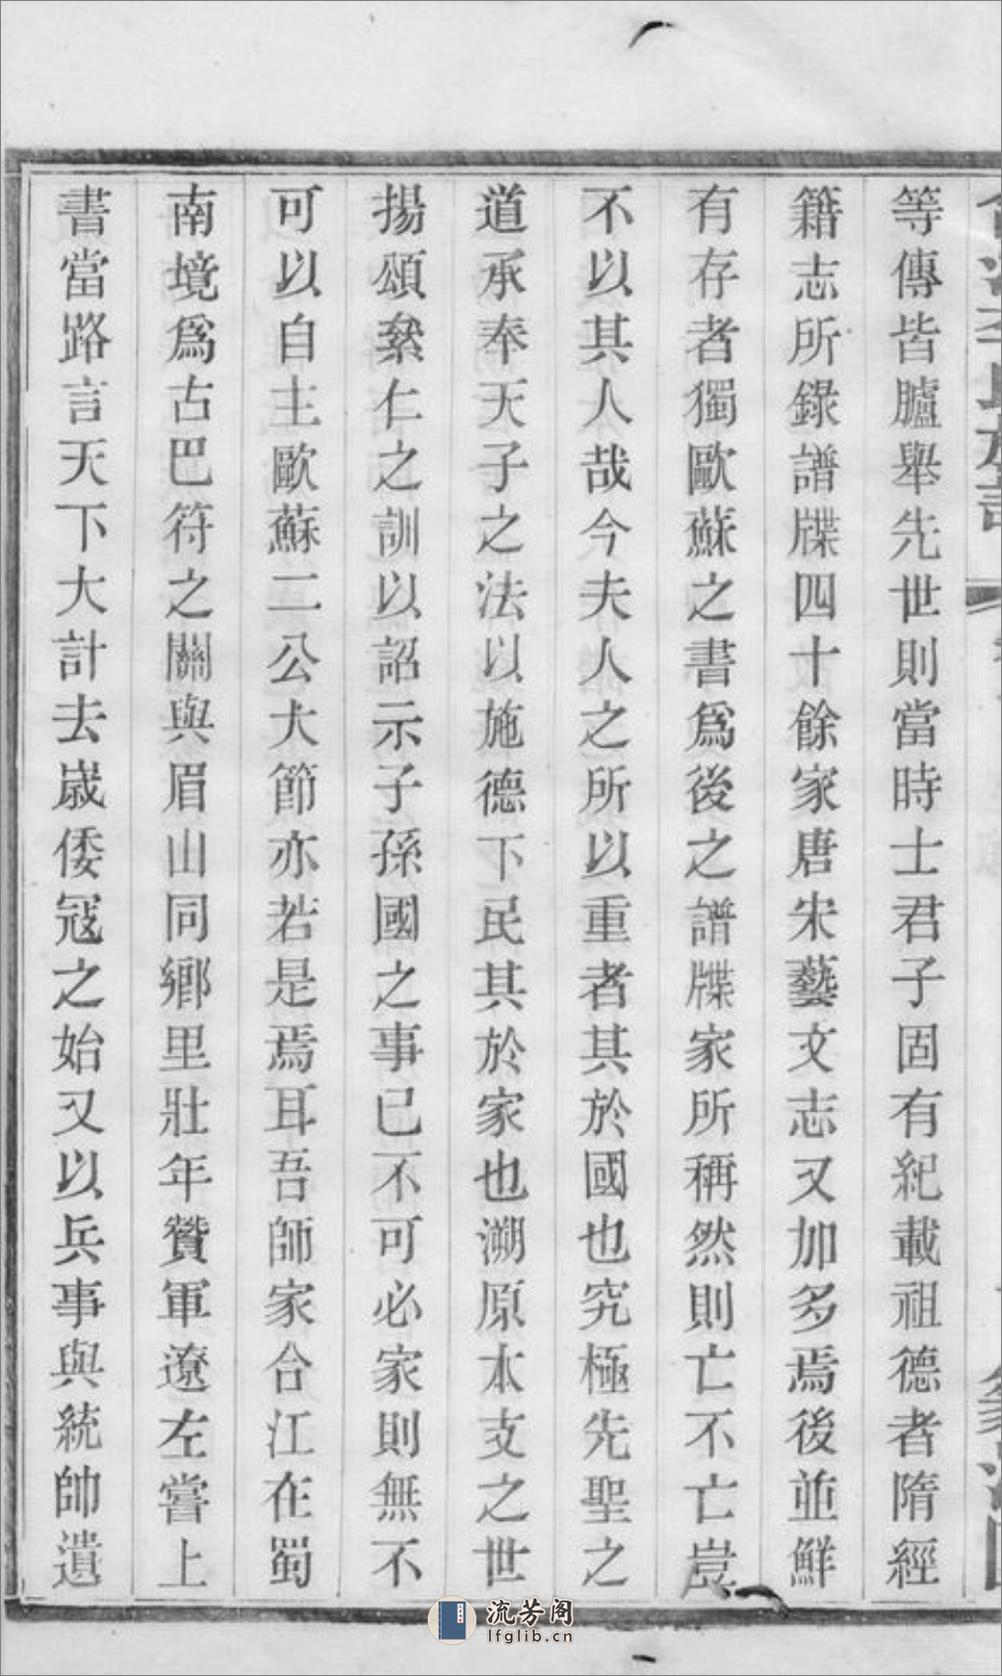 等傳皆臚舉先世則當時士君子固有紀載祖德者隋經
籍志所錄譜牒四十餘家唐宋藝文志又加多焉後並鮮
有存者獨歐蘇之書爲後之譜牒家所稱然則亡不亡豈
不以其人哉今夫人之所以重者其於國也究極先聖之
道承奉天子之法以施德下民其於家也溯原本支之世
揚頌絫仁之訓以詔示子孫國之事已不可必家則無不
可以自主歐蘇二公大節亦若是焉耳吾師家合江在蜀
南境爲古巴符之關與眉山同鄉里壯年贊軍遼左嘗上
書當路言天下大計去嵗倭冦之始又以兵事與統帥遺
流芳阁
lfglib.cn